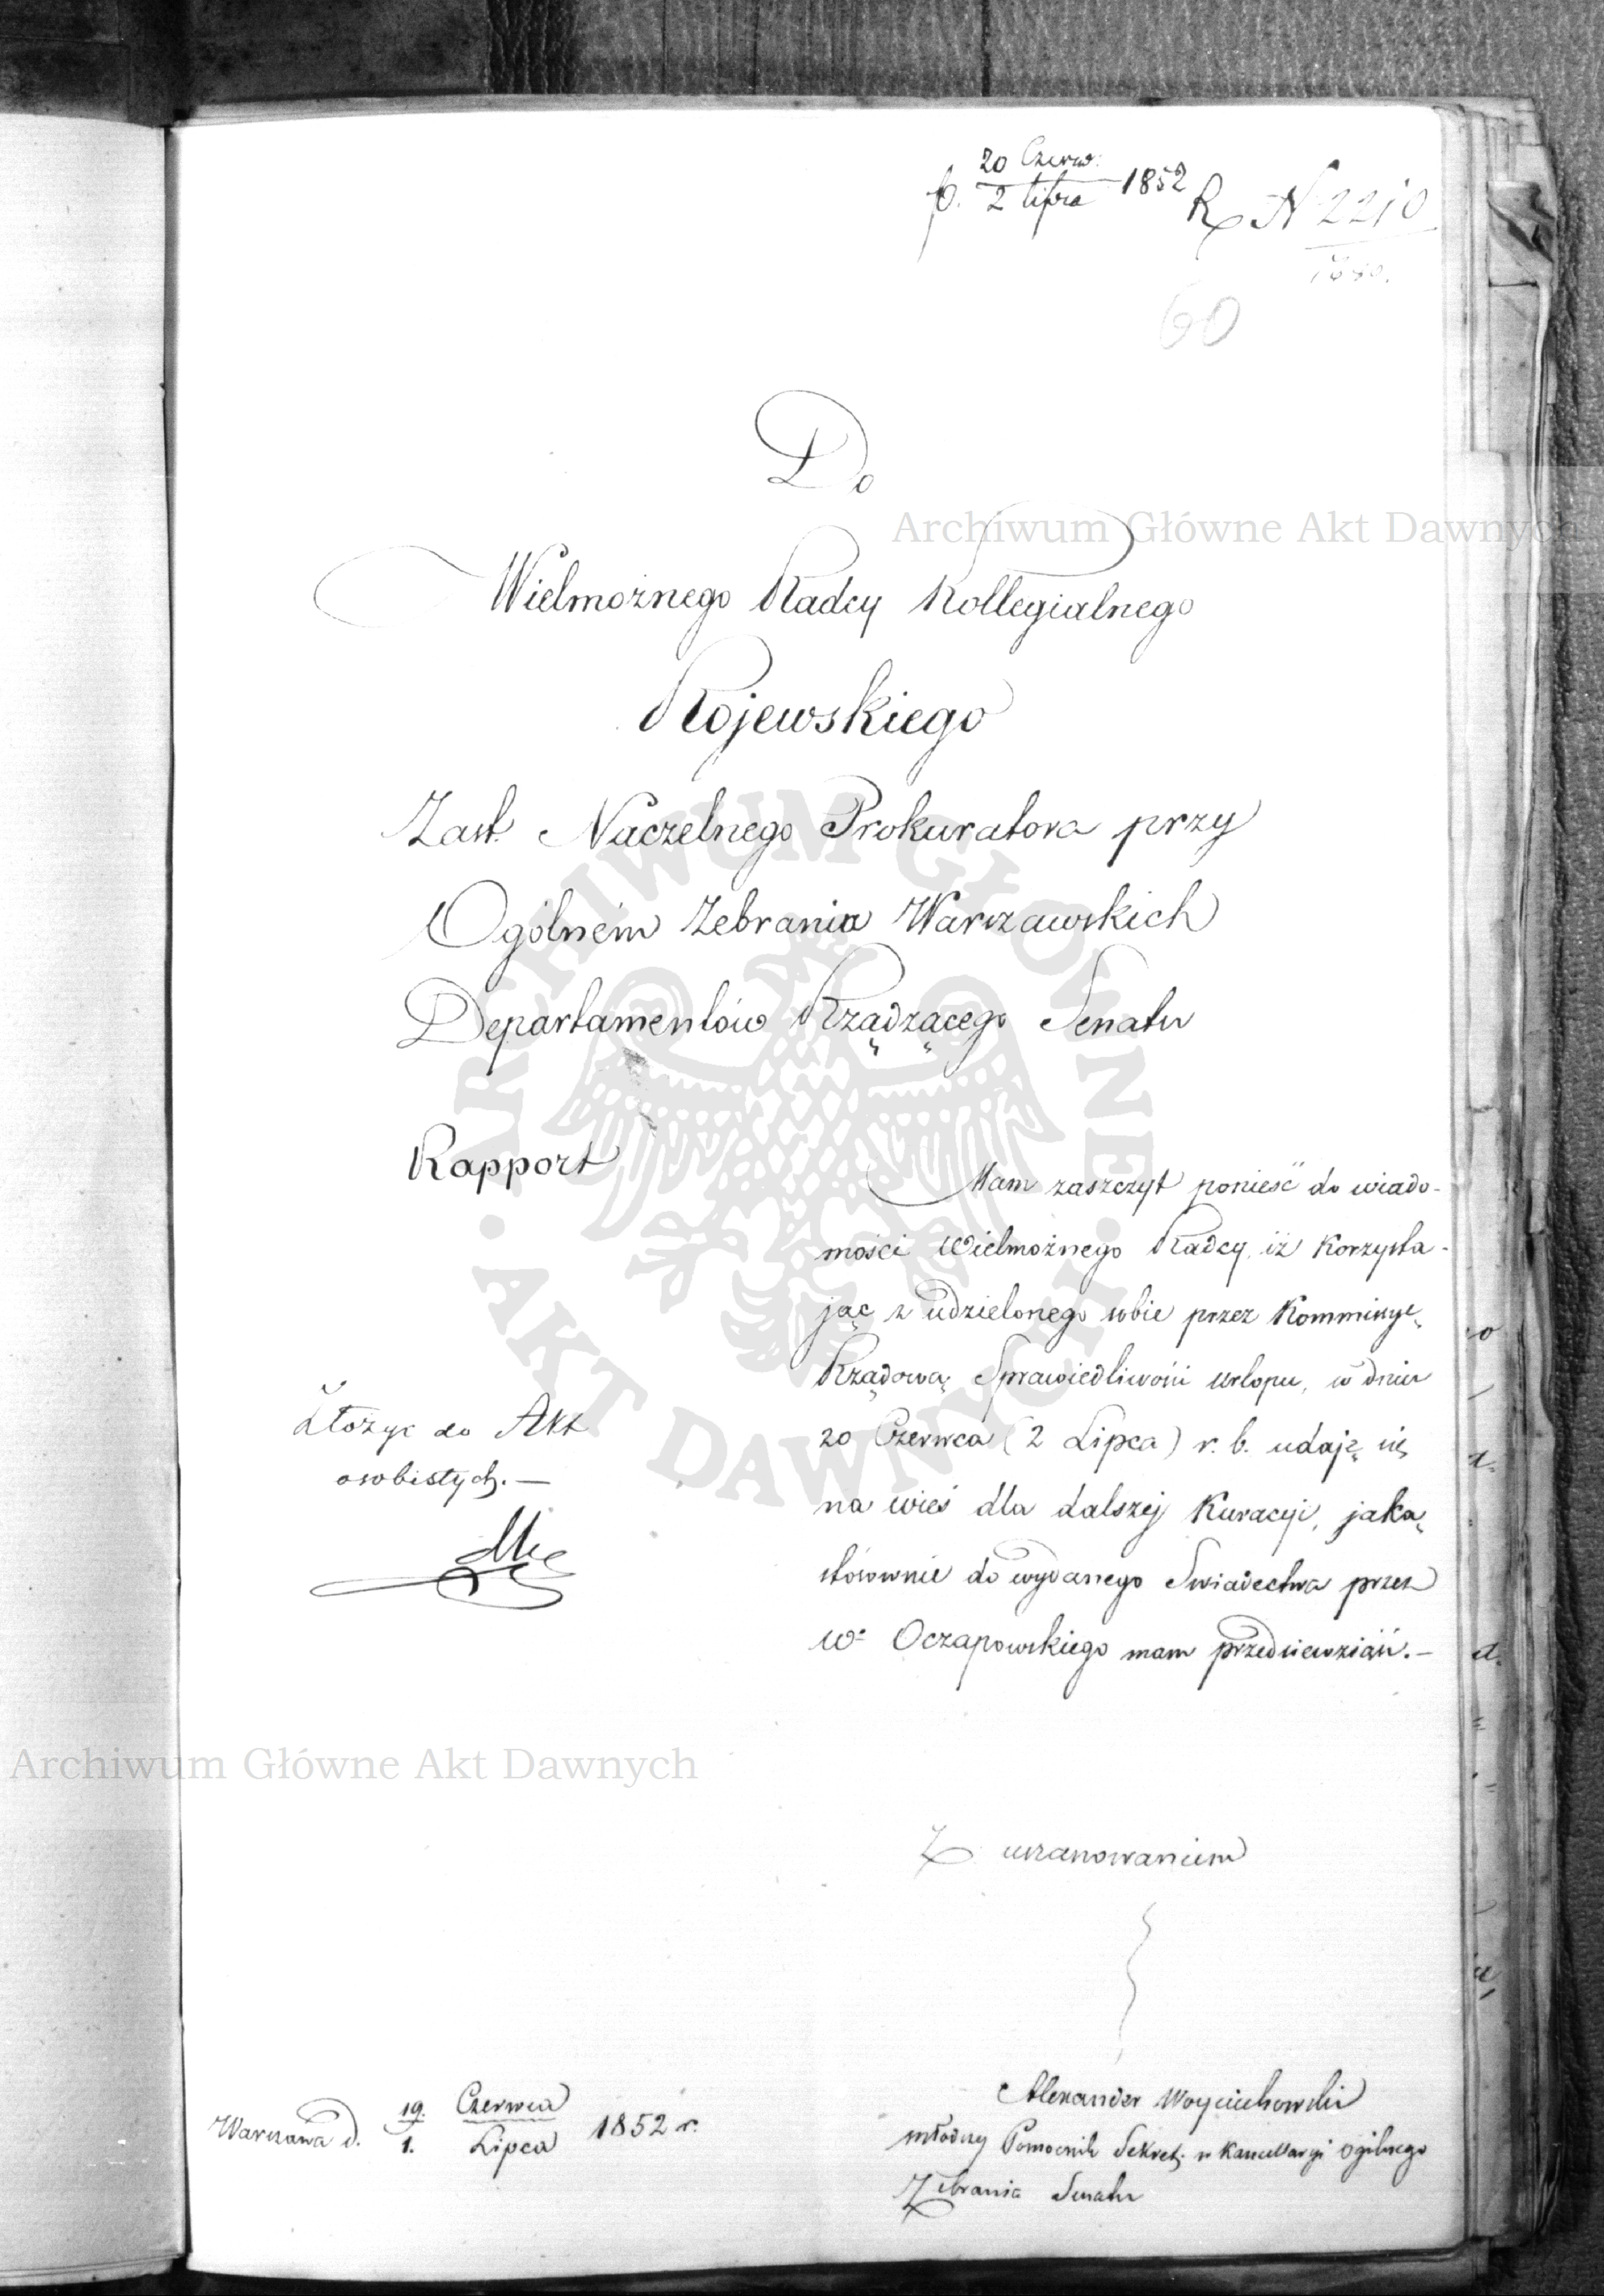 20 Czerw:
p. 2 Lipca 1852
R N 2210
60
Do
Wielmożnego Radcy Kollegialnego
Rojewskiego
Zast. Naczelnego Prokuratora przy
Ogólném Zebraniu Warszawskich
Departamentów Rządzącego Senatu
Rapport
Mam zaszczyt ponieść do wiado-
mości Wielmożnego Radcy, iż korzysta-
jąc z udzielonego sobie przez Kommissyę
Rządową Sprawiedliwości urlopu, w dniu
20 Czerwca (2 Lipca) r. b. udaję się
na wieś dla dalszej Kuracyi, jaką
stósownie do wydanego Swiadectwa przez
Wº Oczapowskiego mam przedsięwziąść.—
Złożyć do Akt
osobistych.—
Z uszanowaniem
Warszawa d. 19/1. Czerwca/Lipca 1852 r.
Alexander Woyciechowski
młodszy Pomocnik Sekret. w Kancellaryi Ogólnego
Zebrania Senatu
Archiwum Główne Akt Dawnych
ARCHIWUM GŁÓWNE AKT DAWNYCH
Archiwum Główne Akt Dawnych